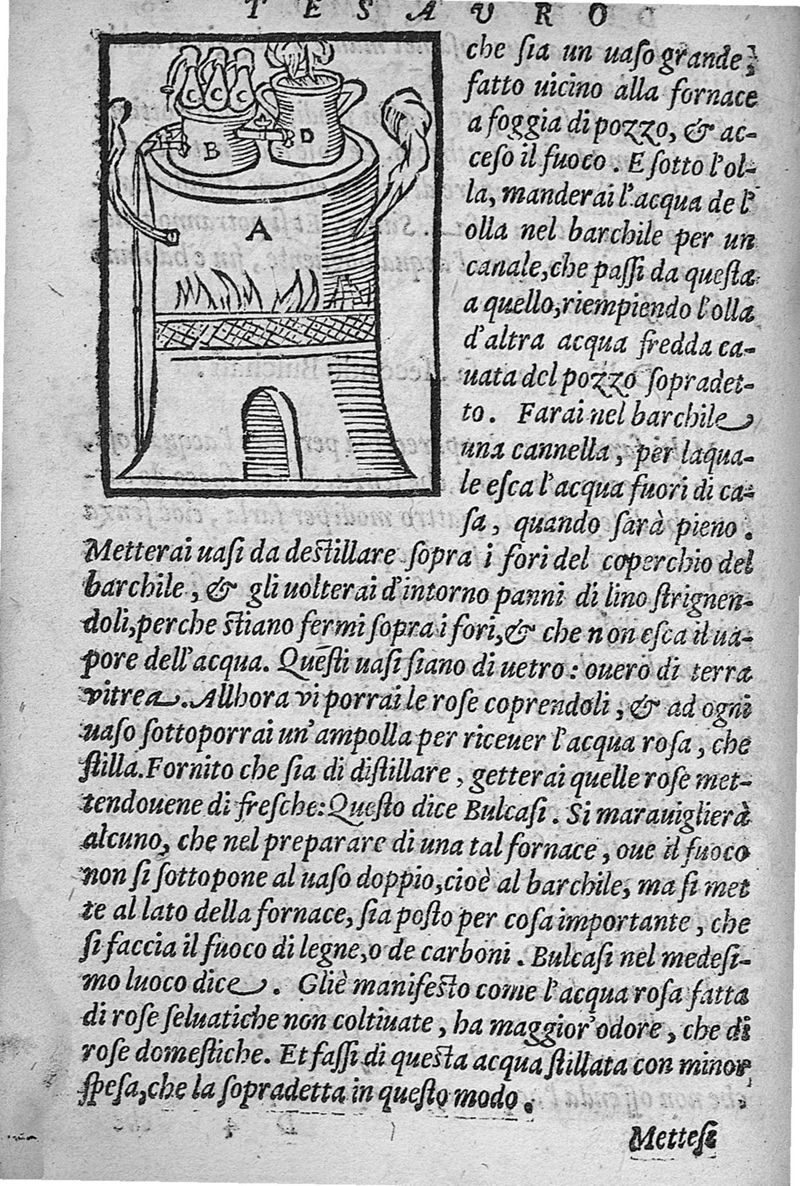 TESAVRO
che ſia un uaſo grande,
fatto uicino alla fornace
a foggia di pozzo, & ac-
ceſo il fuoco. E ſotto l'ol-
la, manderai l'acqua de l'
olla nel barchile per un
canale, che paſſi da queſta
a quello, riempiendo l'olla
d'altra acqua fredda ca-
uata del pozzo ſopradet-
to. Farai nel barchile
una cannella, per laqua-
le eſca l'acqua fuori di ca-
ſa, quando ſarà pieno.
B
C
C
C
D
A
Metterai uaſi da deſtillare ſopra i fori del coperchio del
barchile, & gli uolterai d'intorno panni di lino ſtrignen-
doli, perche ſtiano fermi ſopra i fori, & che non eſca il ua-
pore dell'acqua. Queſti uaſi ſiano di uetro: ouero di terra
vitrea. Allhora vi porrai le roſe coprendoli, & ad ogni
uaſo ſottoporrai un'ampolla per riceuer l'acqua roſa, che
ſtilla. Fornito che ſia di diſtillare, getterai quelle roſe met-
tendouene di freſche: Queſto dice Bulcaſi. Si marauiglierà
alcuno, che nel preparare di una tal fornace, oue il fuoco
non ſi ſottopone al uaſo doppio, cioè al barchile, ma ſi met
te al lato della fornace, ſia poſto per coſa importante, che
ſi faccia il fuoco di legne, o de carboni. Bulcaſi nel medeſi-
mo luoco dice. Gliè manifeſto come l'acqua roſa fatta
di roſe ſeluatiche non coltiuate, ha maggior'odore, che di
roſe domeſtiche. Et faſſi di queſta acqua ſtillata con minor
ſpeſa, che la ſopradetta in queſto modo.
Metteſi